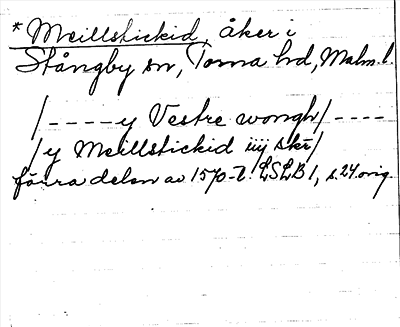 * Meillstickid, åker i
Stångby sn, Torna hd, Malm. l.
/----y Vestre wongh/----
/y Meillstickid iiij skr/
förra delen av 1570-t. LSLB 1, s. 24 orig.